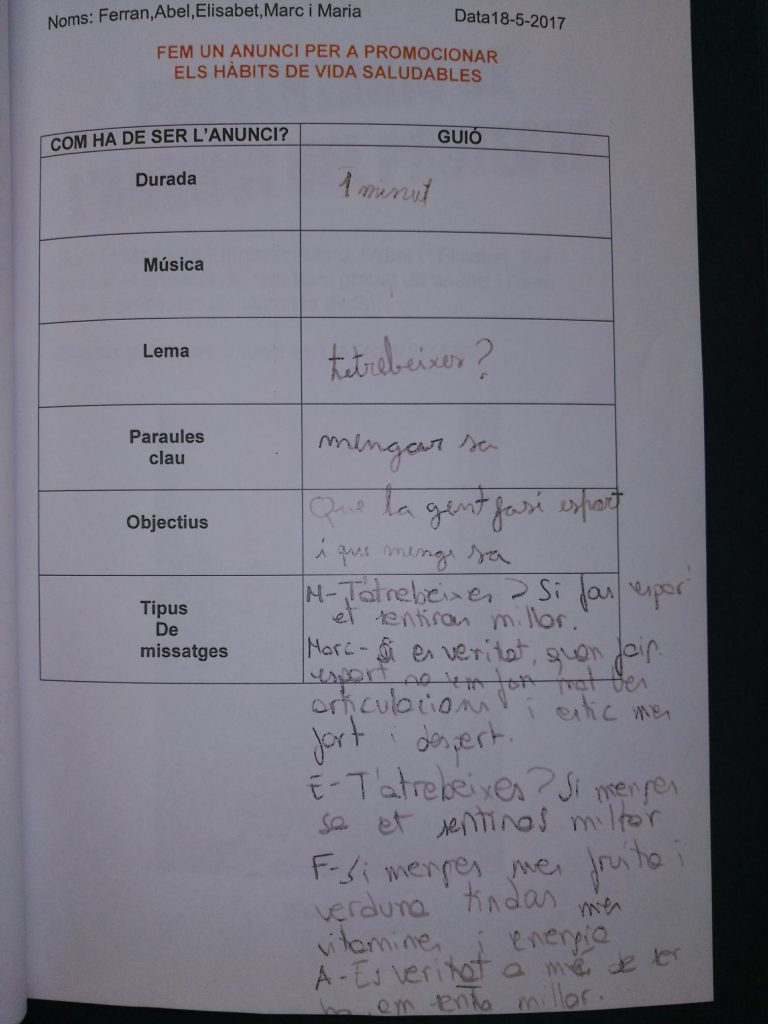 Noms: Ferran,Abel,Elisabet,Marc i Maria
Data18-5-2017
FEM UN ANUNCI PER A PROMOCIONAR
ELS HÀBITS DE VIDA SALUDABLES
COM HA DE SER L'ANUNCI?
GUIÓ
Durada
1 minut
Música
Lema
tatrebeixes?
Paraules
clau
mengar sa
Objectius
Que la gent fasi esport
i que menge sa
Tipus
De
missatges
M-T'atrebeixes? Si fas espor
et sentiras millor.
Marc- Si es veritat, quan faig
esport no em fan mal
articulacions i estic mes
fort i despert.
E-T'atrebeixes? Si menges
sa et sentiras millor
F-Si menges mes fruita i
verdura tindas mes
vitamines i energia
A-Es veritat a més de ser
em sento millor.